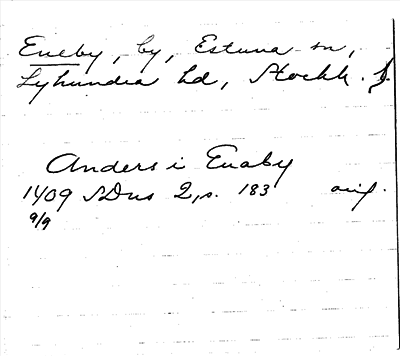 Eneby, by, Estuna sn,
Lyhundra hd, Stockh. l.
Anders i Enaby
1409 SDns 2, s. 183 orig.
9/9